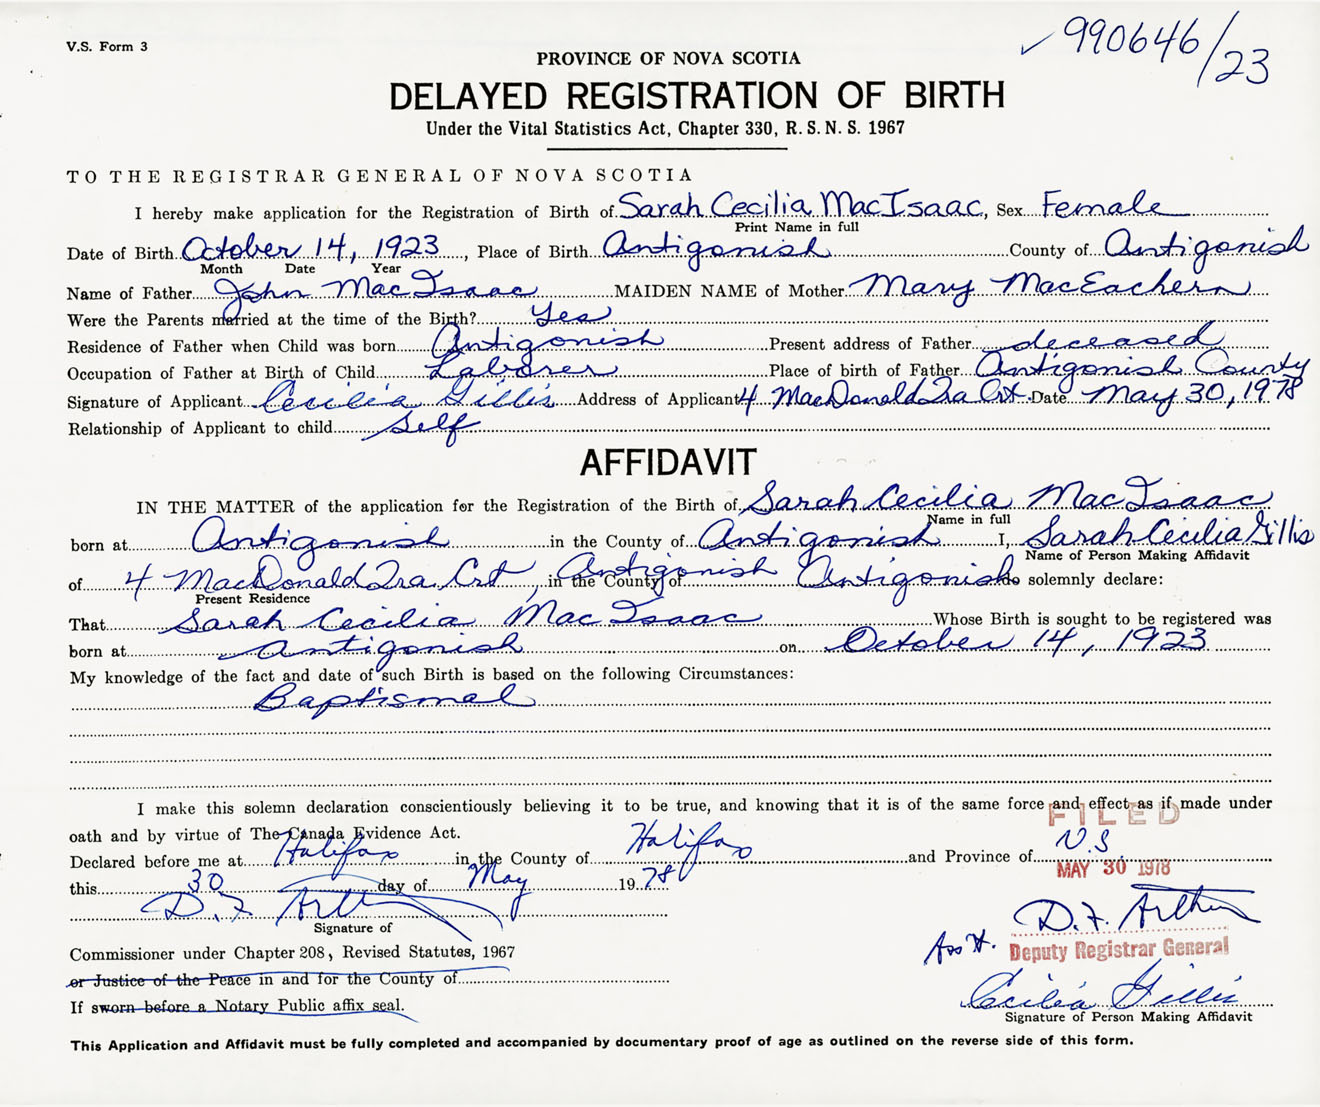 V.S. Form 3
✓990646/23
PROVINCE OF NOVA SCOTIA
DELAYED REGISTRATION OF BIRTH
Under the Vital Statistics Act, Chapter 330, R. S. N. S. 1967
TO THE REGISTRAR GENERAL OF NOVA SCOTIA
I hereby make application for the Registration of Birth of Sarah Cecilia MacIsaac, Sex Female
Print Name in full
Date of Birth October 14, 1923, Place of Birth Antigonish County of Antigonish
Month Date Year
Name of Father John MacIsaac MAIDEN NAME of Mother Mary MacEachern
Were the Parents married at the time of the Birth? Yes
Residence of Father when Child was born Antigonish Present address of Father deceased
Occupation of Father at Birth of Child Laborer Place of birth of Father Antigonish County
Signature of Applicant Cecilia Gillis Address of Applicant 4 MacDonald Tra Crt. Date May 30, 1978
Relationship of Applicant to child self
AFFIDAVIT
IN THE MATTER of the application for the Registration of the Birth of Sarah Cecilia MacIsaac
Name in full
born at Antigonish in the County of Antigonish I, Sarah Cecilia Gillis
Name of Person Making Affidavit
of 4 MacDonald Tra. Crt, Antigonish in the County of Antigonish do solemnly declare:
Present Residence
That Sarah Cecilia MacIsaac Whose Birth is sought to be registered was
born at Antigonish on October 14, 1923
My knowledge of the fact and date of such Birth is based on the following Circumstances:
Baptismal
I make this solemn declaration conscientiously believing it to be true, and knowing that it is of the same force and effect as if made under
oath and by virtue of The Canada Evidence Act.
FILED
Declared before me at Halifax in the County of Halifax and Province of N.S.
MAY 30 1978
this 30 day of May 1978
D. F. Arthur
Signature of
D. F. Arthur
Commissioner under Chapter 208, Revised Statutes, 1967
Ass't. Deputy Registrar General
or Justice of the Peace in and for the County of
Cecilia Gillis
If sworn before a Notary Public affix seal.
Signature of Person Making Affidavit
This Application and Affidavit must be fully completed and accompanied by documentary proof of age as outlined on the reverse side of this form.